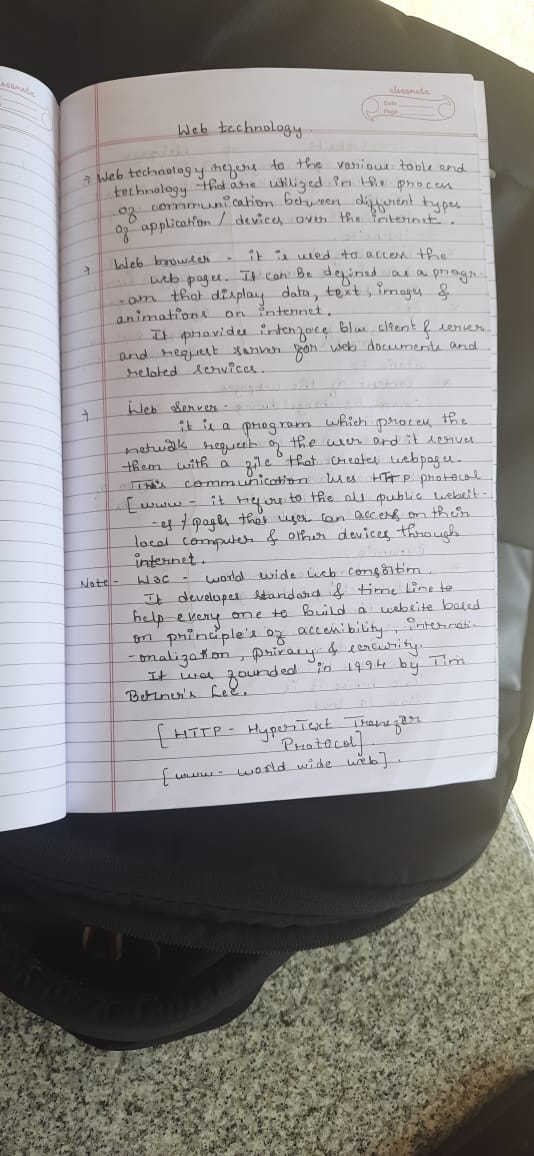 classmate
classmate
Date
Page
Web technology
→ Web technology refers to the various table and
technology that are utilized in the process
of communication between different types
of application / devices over the internet.
→ Web browser - it is used to access the
web pages. It can Be defined as a progr-
-am that display data, text, images &
animations on internet.
It provides interface b/w client & server
and request server for web documents and
related services.
→ Web Server -
it is a program which process the
network request of the user and it serves
them with a file that creates webpages.
This communication uses HTTP protocol
[www - it refers to the all public websit-
-es / pages that user can access on their
local computer & other devices through
internet.
Note - W3C - world wide web consortim
It developes standard & time line to
help every one to Build a website based
on principle's of accessibility, internati-
-onalization, privacy & sercurity.
It was founded in 1994 by Tim
Berner's Lee.
[HTTP - HyperText Transfer
Protocol]
[www - world wide web].